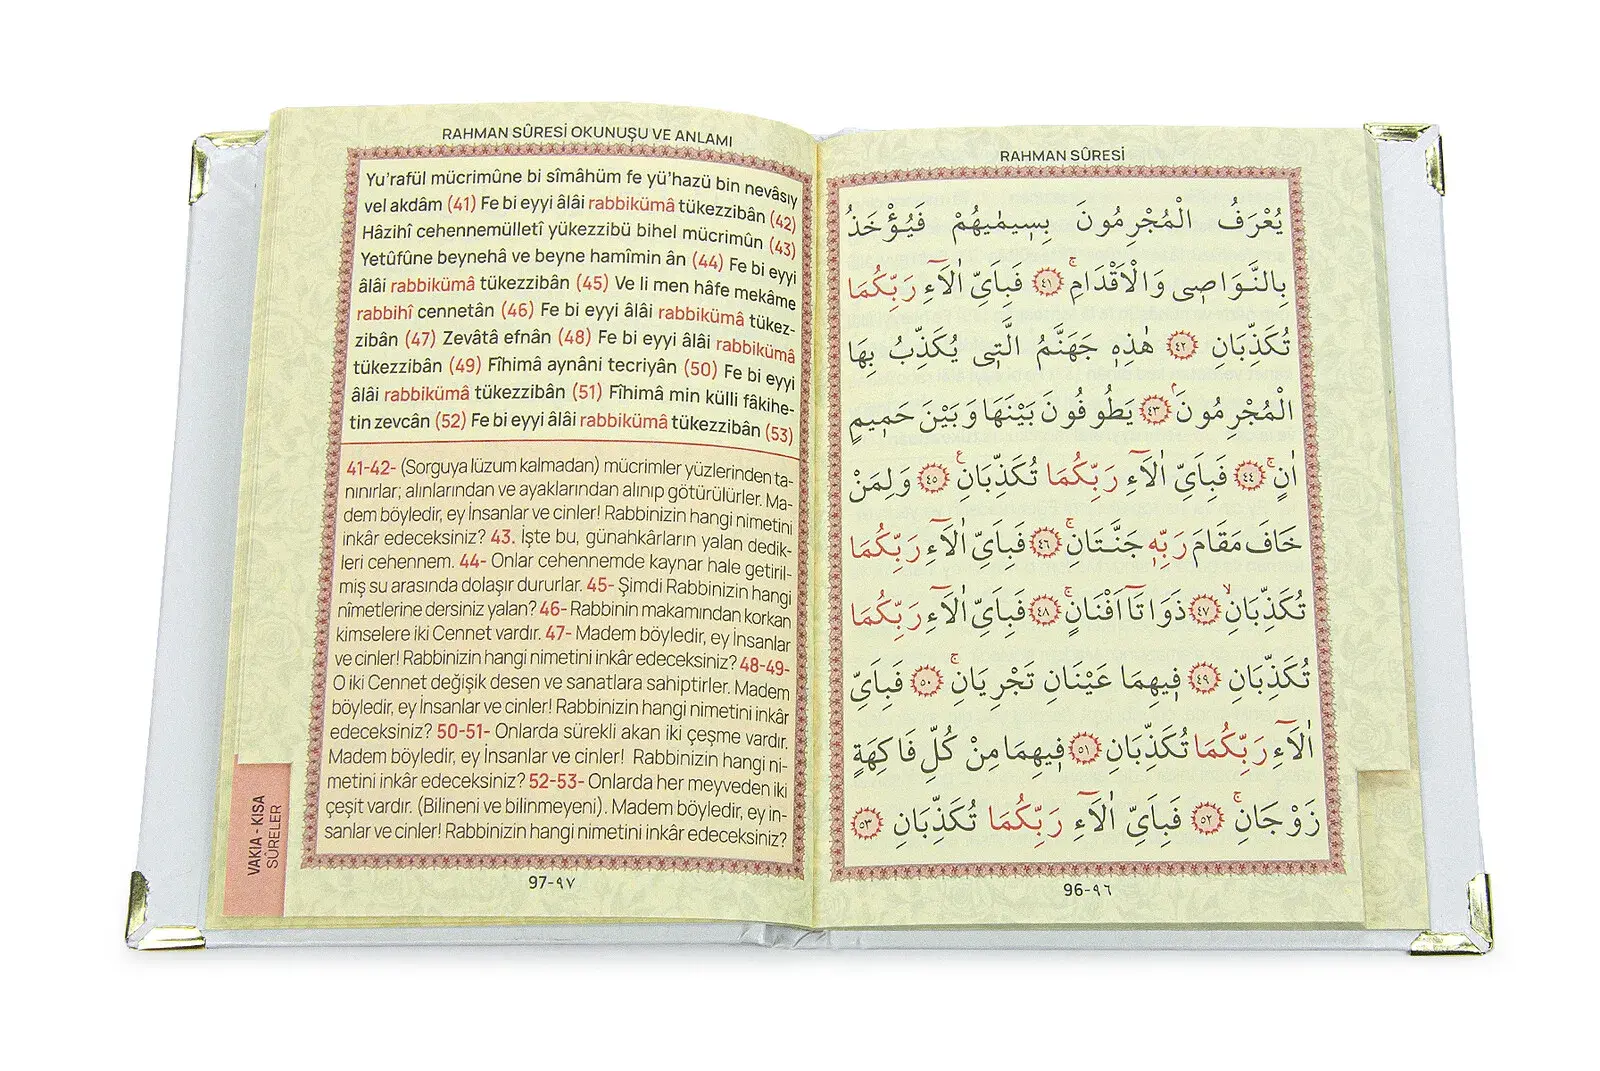 RAHMAN SÛRESİ OKUNUŞU VE ANLAMI
Yu'rafül mücrimûne bi sîmâhüm fe yü'hazü bin nevâsıy
vel akdâm (41) Fe bi eyyi âlâi rabbikümâ tükezzibân (42)
Hâzihî cehennemülletî yükezzibü bihel mücrimûn (43)
Yetûfûne beynehâ ve beyne hamîmin ân (44) Fe bi eyyi
âlâi rabbikümâ tükezzibân (45) Ve li men hâfe mekâme
rabbihî cennetân (46) Fe bi eyyi âlâi rabbikümâ tükez-
zibân (47) Zevâtâ efnân (48) Fe bi eyyi âlâi rabbikümâ
tükezzibân (49) Fîhimâ aynâni tecriyân (50) Fe bi eyyi
âlâi rabbikümâ tükezzibân (51) Fîhimâ min külli fâkihe-
tin zevcân (52) Fe bi eyyi âlâi rabbikümâ tükezzibân (53)
41-42- (Sorguya lüzum kalmadan) mücrimler yüzlerinden ta-
nınırlar; alınlarından ve ayaklarından alınıp götürülürler. Ma-
dem böyledir, ey İnsanlar ve cinler! Rabbinizin hangi nimetini
inkâr edeceksiniz? 43. İşte bu, günahkârların yalan dedik-
leri cehennem. 44- Onlar cehennemde kaynar hale getiril-
miş su arasında dolaşır dururlar. 45- Şimdi Rabbinizin hangi
nîmetlerine dersiniz yalan? 46- Rabbinin makamından korkan
kimselere iki Cennet vardır. 47- Madem böyledir, ey İnsanlar
ve cinler! Rabbinizin hangi nimetini inkâr edeceksiniz? 48-49-
O iki Cennet değişik desen ve sanatlara sahiptirler. Madem
böyledir, ey İnsanlar ve cinler! Rabbinizin hangi nimetini inkâr
edeceksiniz? 50-51- Onlarda sürekli akan iki çeşme vardır.
Madem böyledir, ey İnsanlar ve cinler! Rabbinizin hangi ni-
metini inkâr edeceksiniz? 52-53- Onlarda her meyveden iki
çeşit vardır. (Bilineni ve bilinmeyeni). Madem böyledir, ey in-
sanlar ve cinler! Rabbinizin hangi nimetini inkâr edeceksiniz?
VAKIA - KISA
SÛRELER
97-٩٧
RAHMAN SÛRESİ
يُعْرَفُ الْمُجْرِمُونَ بِسٖيمٰيهُمْ فَيُؤْخَذُ
بِالنَّوَاصٖى وَالْاَقْدَامِۚ ﴿٤١﴾ فَبِاَيِّ اٰلَٓاءِ رَبِّكُمَا
تُكَذِّبَانِ ﴿٤٢﴾ هٰذِهٖ جَهَنَّمُ الَّتٖى يُكَذِّبُ بِهَا
الْمُجْرِمُونَۘ ﴿٤٣﴾ يَطُوفُونَ بَيْنَهَا وَبَيْنَ حَمٖيمٍ
اٰنٍۚ ﴿٤٤﴾ فَبِاَيِّ اٰلَٓاءِ رَبِّكُمَا تُكَذِّبَانِࣖ ﴿٤٥﴾ وَلِمَنْ
خَافَ مَقَامَ رَبِّهٖ جَنَّتَانِۚ ﴿٤٦﴾ فَبِاَيِّ اٰلَٓاءِ رَبِّكُمَا
تُكَذِّبَانِۙ ﴿٤٧﴾ ذَوَاتَٓا اَفْنَانٍۚ ﴿٤٨﴾ فَبِاَيِّ اٰلَٓاءِ رَبِّكُمَا
تُكَذِّبَانِ ﴿٤٩﴾ فٖيهِمَا عَيْنَانِ تَجْرِيَانِۚ ﴿٥٠﴾ فَبِاَيِّ
اٰلَٓاءِ رَبِّكُمَا تُكَذِّبَانِ ﴿٥١﴾ فٖيهِمَا مِنْ كُلِّ فَاكِهَةٍ
زَوْجَانِۚ ﴿٥٢﴾ فَبِاَيِّ اٰلَٓاءِ رَبِّكُمَا تُكَذِّبَانِ ﴿٥٣﴾
96-٩٦